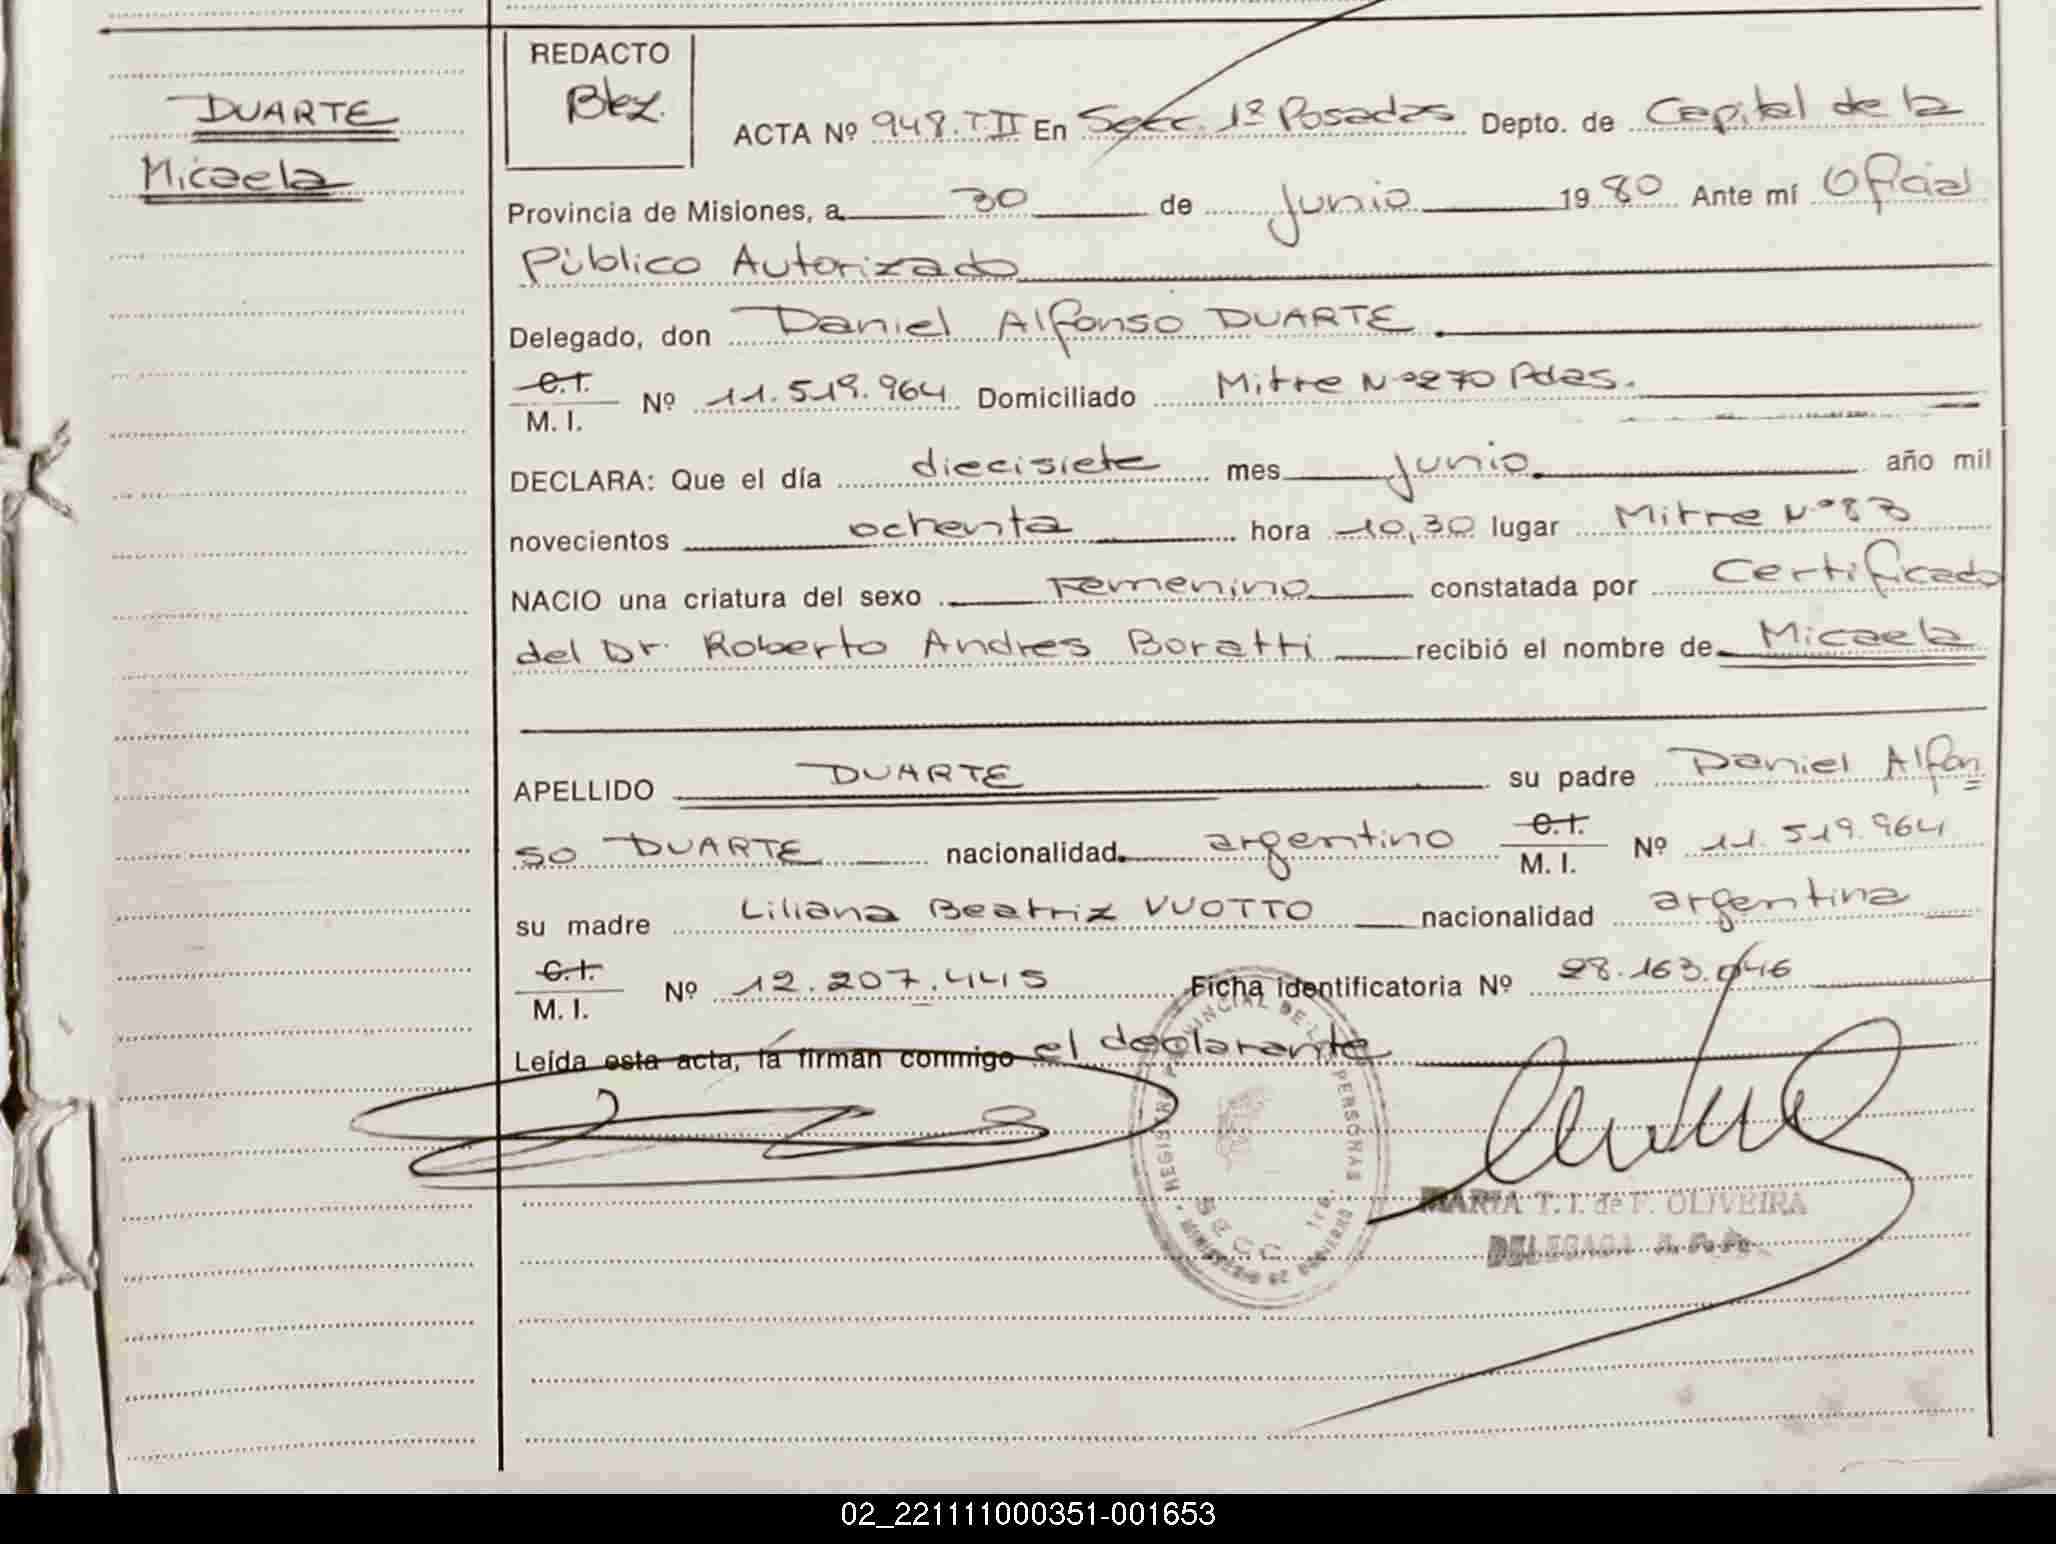 DUARTE
Micaela
REDACTO
Blez.
ACTA Nº 948.TII En Secc. 1ª Posadas Depto. de Capital de la
Provincia de Misiones, a 30 de Junio 1980 Ante mí Oficial
Público Autorizado
Delegado, don Daniel Alfonso DUARTE
C.I.
M. I. Nº 11.519.964 Domiciliado Mitre Nº 270 Pdas.
DECLARA: Que el día diecisiete mes junio año mil
novecientos ochenta hora 10,30 lugar Mitre Nº 83
NACIO una criatura del sexo Femenino constatada por Certificado
del Dr. Roberto Andres Boratti recibió el nombre de Micaela
APELLIDO DUARTE su padre Daniel Alfon
so DUARTE nacionalidad argentino C.I. M. I. Nº 11.519.964
su madre Liliana Beatriz VUOTTO nacionalidad argentina
C.I.
M. I. Nº 12.207.445 Ficha identificatoria Nº 28.163.046
Leída esta acta, la firman conmigo el declarante
REGISTRO PROVINCIAL DE LAS PERSONAS
MINISTERIO DE GOBIERNO
SECC. 1ra.
MARIA T. I. de F. OLIVEIRA
DELEGADA
02_221111000351-001653